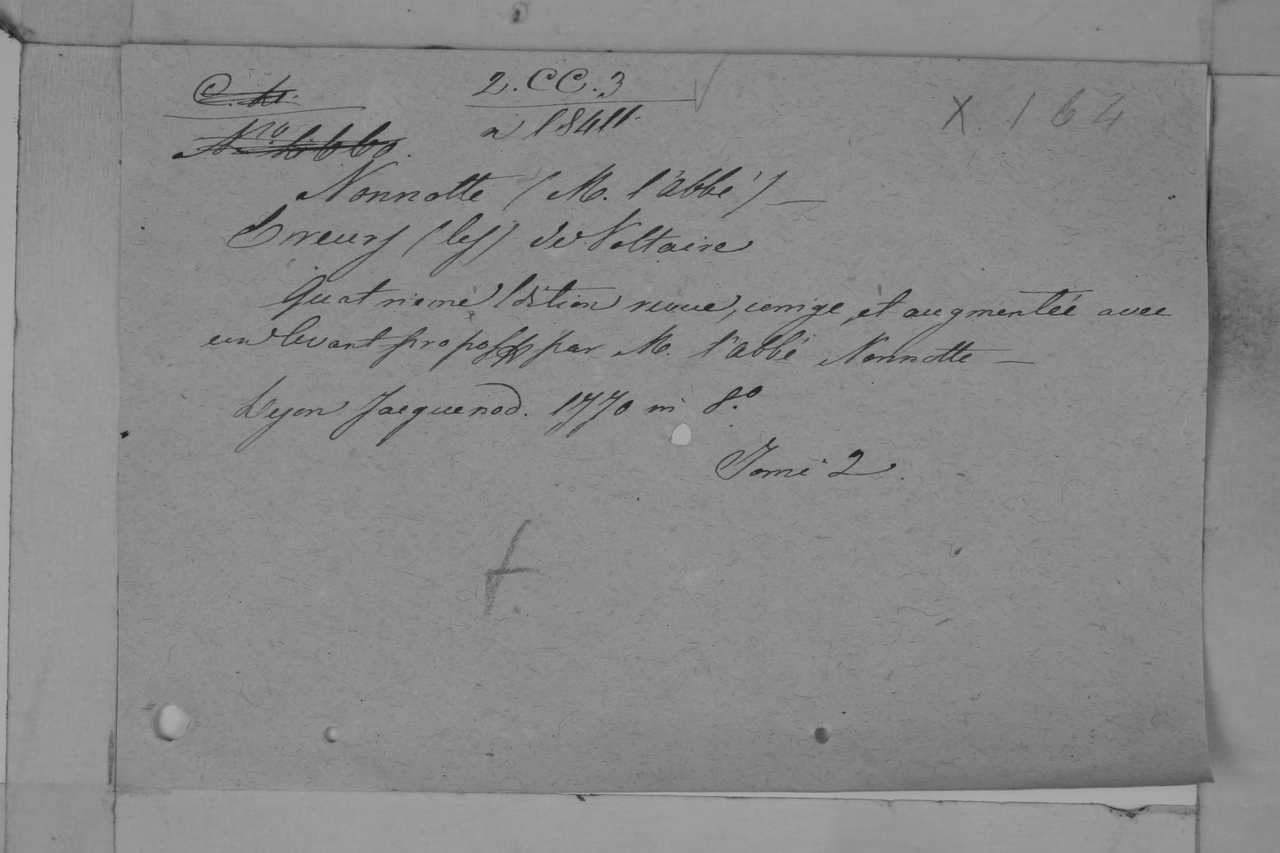 C. 2. CC. 3
a 18411
X. 164
Nonnotte (M. l'abbé) —
Erreurs (les) de Voltaire
Quatrieme Edition revue, corrige, et augmentée avec
un avant propos par M. l'abbé Nonnotte —
Lyon Jacquenod. 1770 in 8.º
Tome 2.